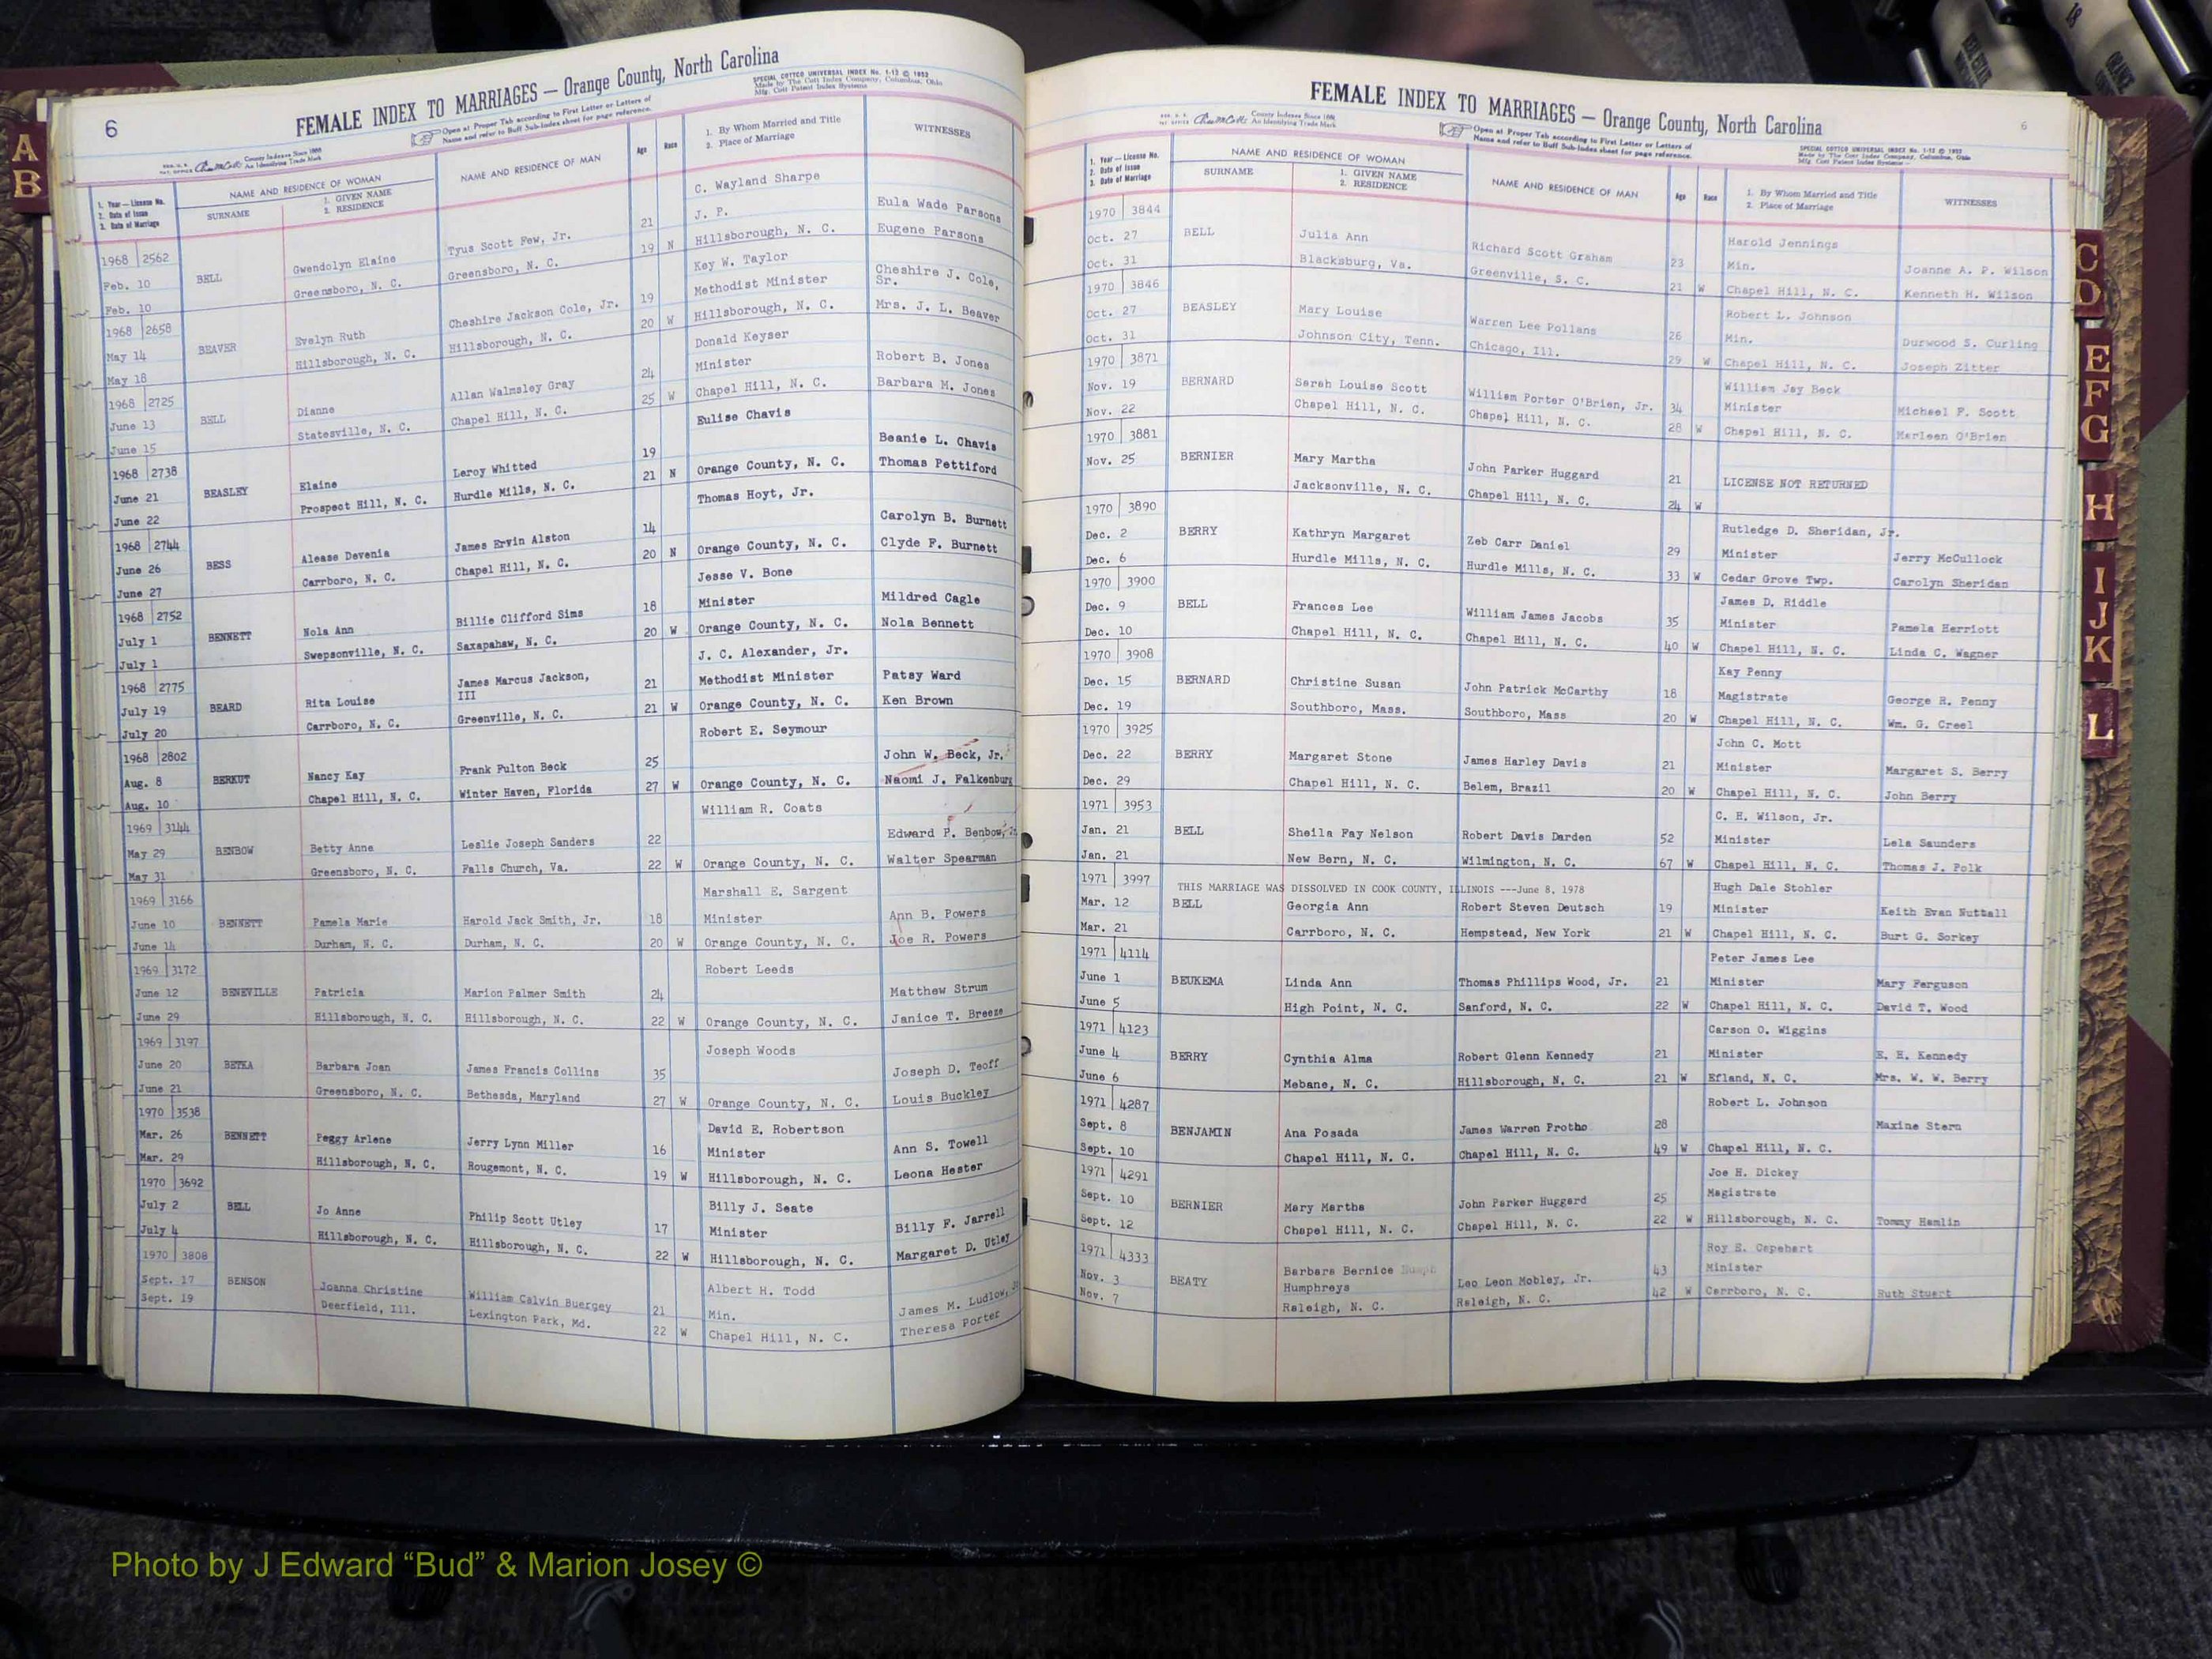 6
FEMALE INDEX TO MARRIAGES — Orange County, North Carolina
SPECIAL COTTCO UNIVERSAL INDEX No. 1-12 © 1952
Made by The Cott Index Company, Columbus, Ohio
Mfg. Cott Patent Index Systems
Open at Proper Tab according to First Letter or Letters of
Name and refer to Buff Sub-Index sheet for page reference.
County Indexes Since 1888
An Identifying Trade Mark
1. Year — License No.
2. Date of Issue
3. Date of Marriage
NAME AND RESIDENCE OF WOMAN
SURNAME
1. GIVEN NAME
2. RESIDENCE
NAME AND RESIDENCE OF MAN
Age
Race
1. By Whom Married and Title
2. Place of Marriage
WITNESSES
1968 2562 C. Wayland Sharpe
Feb. 10 BELL Gwendolyn Elaine Tyus Scott Few, Jr. 21 J. P. Eula Wade Parsons
Feb. 10 Greensboro, N. C. Greensboro, N. C. 19 N Hillsborough, N. C. Eugene Parsons
1968 2658 Key W. Taylor
May 14 BEAVER Evelyn Ruth Cheshire Jackson Cole, Jr. 19 Methodist Minister Cheshire J. Cole, Sr.
May 18 Hillsborough, N. C. Hillsborough, N. C. 20 W Hillsborough, N. C. Mrs. J. L. Beaver
1968 2725 Donald Keyser
June 13 BELL Dianne Allan Walmsley Gray 24 Minister Robert B. Jones
June 15 Statesville, N. C. Chapel Hill, N. C. 25 W Chapel Hill, N. C. Barbara M. Jones
1968 2738 Eulise Chavis
June 21 BEASLEY Elaine Leroy Whitted 19 Beanie L. Chavis
June 22 Prospect Hill, N. C. Hurdle Mills, N. C. 21 N Orange County, N. C. Thomas Pettiford
1968 2744 Thomas Hoyt, Jr.
June 26 BESS Alease Devenia James Ervin Alston 14 Carolyn B. Burnett
June 27 Carrboro, N. C. Chapel Hill, N. C. 20 N Orange County, N. C. Clyde F. Burnett
1968 2752 Jesse V. Bone
July 1 BENNETT Nola Ann Billie Clifford Sims 18 Minister Mildred Cagle
July 1 Swepsonville, N. C. Saxapahaw, N. C. 20 W Orange County, N. C. Nola Bennett
1968 2775 J. C. Alexander, Jr.
July 19 BEARD Rita Louise James Marcus Jackson, III 21 Methodist Minister Patsy Ward
July 20 Carrboro, N. C. Greenville, N. C. 21 W Orange County, N. C. Ken Brown
1968 2802 Robert E. Seymour
Aug. 8 BERKUT Nancy Kay Frank Fulton Beck 25 John W. Beck, Jr.
Aug. 10 Chapel Hill, N. C. Winter Haven, Florida 27 W Orange County, N. C. Naomi J. Falkenburg
1969 3144 William R. Coats
May 29 BENBOW Betty Anne Leslie Joseph Sanders 22 Edward P. Benbow,
May 31 Greensboro, N. C. Falls Church, Va. 22 W Orange County, N. C. Walter Spearman
1969 3166 Marshall E. Sargent
June 10 BENNETT Pamela Marie Harold Jack Smith, Jr. 18 Minister Ann B. Powers
June 14 Durham, N. C. Durham, N. C. 20 W Orange County, N. C. Joe R. Powers
1969 3172 Robert Leeds
June 12 BENEVILLE Patricia Marion Palmer Smith 24 Matthew Strum
June 29 Hillsborough, N. C. Hillsborough, N. C. 22 W Orange County, N. C. Janice T. Breeze
1969 3197 Joseph Woods
June 20 BETKA Barbara Joan James Francis Collins 35 Joseph D. Teoff
June 21 Greensboro, N. C. Bethesda, Maryland 27 W Orange County, N. C. Louis Buckley
1970 3538 David E. Robertson
Mar. 26 BENNETT Peggy Arlene Jerry Lynn Miller 16 Minister Ann S. Towell
Mar. 29 Hillsborough, N. C. Rougemont, N. C. 19 W Hillsborough, N. C. Leona Hester
1970 3692 Billy J. Seate
July 2 BELL Jo Anne Philip Scott Utley 17 Minister Billy F. Jarrell
July 4 Hillsborough, N. C. Hillsborough, N. C. 22 W Hillsborough, N. C. Margaret D. Utley
1970 3808 Albert H. Todd
Sept. 17 BENSON Joanna Christine William Calvin Buergey 21 Min. James M. Ludlow,
Sept. 19 Deerfield, Ill. Lexington Park, Md. 22 W Chapel Hill, N. C. Theresa Porter
FEMALE INDEX TO MARRIAGES — Orange County, North Carolina
6
County Indexes Since 1888
An Identifying Trade Mark
Open at Proper Tab according to First Letter or Letters of
Name and refer to Buff Sub-Index sheet for page reference.
SPECIAL COTTCO UNIVERSAL INDEX No. 1-12 © 1952
Made by The Cott Index Company, Columbus, Ohio
Mfg. Cott Patent Index Systems
1. Year — License No.
2. Date of Issue
3. Date of Marriage
NAME AND RESIDENCE OF WOMAN
SURNAME
1. GIVEN NAME
2. RESIDENCE
NAME AND RESIDENCE OF MAN
Age
Race
1. By Whom Married and Title
2. Place of Marriage
WITNESSES
1970 3844 Harold Jennings
Oct. 27 BELL Julia Ann Richard Scott Graham 23 Min. Joanne A. P. Wilson
Oct. 31 Blacksburg, Va. Greenville, S. C. 21 W Chapel Hill, N. C. Kenneth H. Wilson
1970 3846 Robert L. Johnson
Oct. 27 BEASLEY Mary Louise Warren Lee Polians 26 Min. Durwood S. Curling
Oct. 31 Johnson City, Tenn. Chicago, Ill. 29 W Chapel Hill, N. C. Joseph Zitter
1970 3871 William Jay Beck
Nov. 19 BERNARD Sarah Louise Scott William Porter O'Brien, Jr. 34 Minister Michael F. Scott
Nov. 22 Chapel Hill, N. C. Chapel Hill, N. C. 28 W Chapel Hill, N. C. Marleen O'Brien
1970 3881
Nov. 25 BERNIER Mary Martha John Parker Huggard 21 LICENSE NOT RETURNED
Jacksonville, N. C. Chapel Hill, N. C. 24 W
1970 3890 Rutledge D. Sheridan, Jr.
Dec. 2 BERRY Kathryn Margaret Zeb Carr Daniel 29 Minister Jerry McCullock
Dec. 6 Hurdle Mills, N. C. Hurdle Mills, N. C. 33 W Cedar Grove Twp. Carolyn Sheridan
1970 3900 James D. Riddle
Dec. 9 BELL Frances Lee William James Jacobs 35 Minister Pamela Herriott
Dec. 10 Chapel Hill, N. C. Chapel Hill, N. C. 40 W Chapel Hill, N. C. Linda C. Wagner
1970 3908 Kay Penny
Dec. 15 BERNARD Christine Susan John Patrick McCarthy 18 Magistrate George R. Penny
Dec. 19 Southboro, Mass. Southboro, Mass 20 W Chapel Hill, N. C. Wm. G. Creel
1970 3925 John C. Mott
Dec. 22 BERRY Margaret Stone James Harley Davis 21 Minister Margaret S. Berry
Dec. 29 Chapel Hill, N. C. Belem, Brazil 20 W Chapel Hill, N. C. John Berry
1971 3953 C. H. Wilson, Jr.
Jan. 21 BELL Sheila Fay Nelson Robert Davis Darden 52 Minister Lela Saunders
Jan. 21 New Bern, N. C. Wilmington, N. C. 67 W Chapel Hill, N. C. Thomas J. Polk
1971 3997 THIS MARRIAGE WAS DISSOLVED IN COOK COUNTY, ILLINOIS ---June 8, 1978 Hugh Dale Stohler
Mar. 12 BELL Georgia Ann Robert Steven Deutsch 19 Minister Keith Evan Nuttall
Mar. 21 Carrboro, N. C. Hempstead, New York 21 W Chapel Hill, N. C. Burt G. Sorkey
1971 4114 Peter James Lee
June 1 BEUKEMA Linda Ann Thomas Phillips Wood, Jr. 21 Minister Mary Ferguson
June 5 High Point, N. C. Sanford, N. C. 22 W Chapel Hill, N. C. David T. Wood
1971 4123 Carson O. Wiggins
June 4 BERRY Cynthia Alma Robert Glenn Kennedy 21 Minister E. H. Kennedy
June 6 Mebane, N. C. Hillsborough, N. C. 21 W Efland, N. C. Mrs. W. W. Berry
1971 4287 Robert L. Johnson
Sept. 8 BENJAMIN Ana Posada James Warren Protho 28 Maxine Stern
Sept. 10 Chapel Hill, N. C. Chapel Hill, N. C. 49 W Chapel Hill, N. C.
1971 4291 Joe H. Dickey
Sept. 10 BERNIER Mary Martha John Parker Huggard 25 Magistrate
Sept. 12 Chapel Hill, N. C. Chapel Hill, N. C. 22 W Hillsborough, N. C. Tommy Hamlin
1971 4333 Roy E. Capehart
Nov. 3 BEATY Barbara Bernice Humphreys Leo Leon Mobley, Jr. 43 Minister
Nov. 7 Raleigh, N. C. Raleigh, N. C. 42 W Carrboro, N. C. Ruth Stuart
A
B
C
D
E
F
G
H
I
J
K
L
Photo by J Edward “Bud” & Marion Josey ©